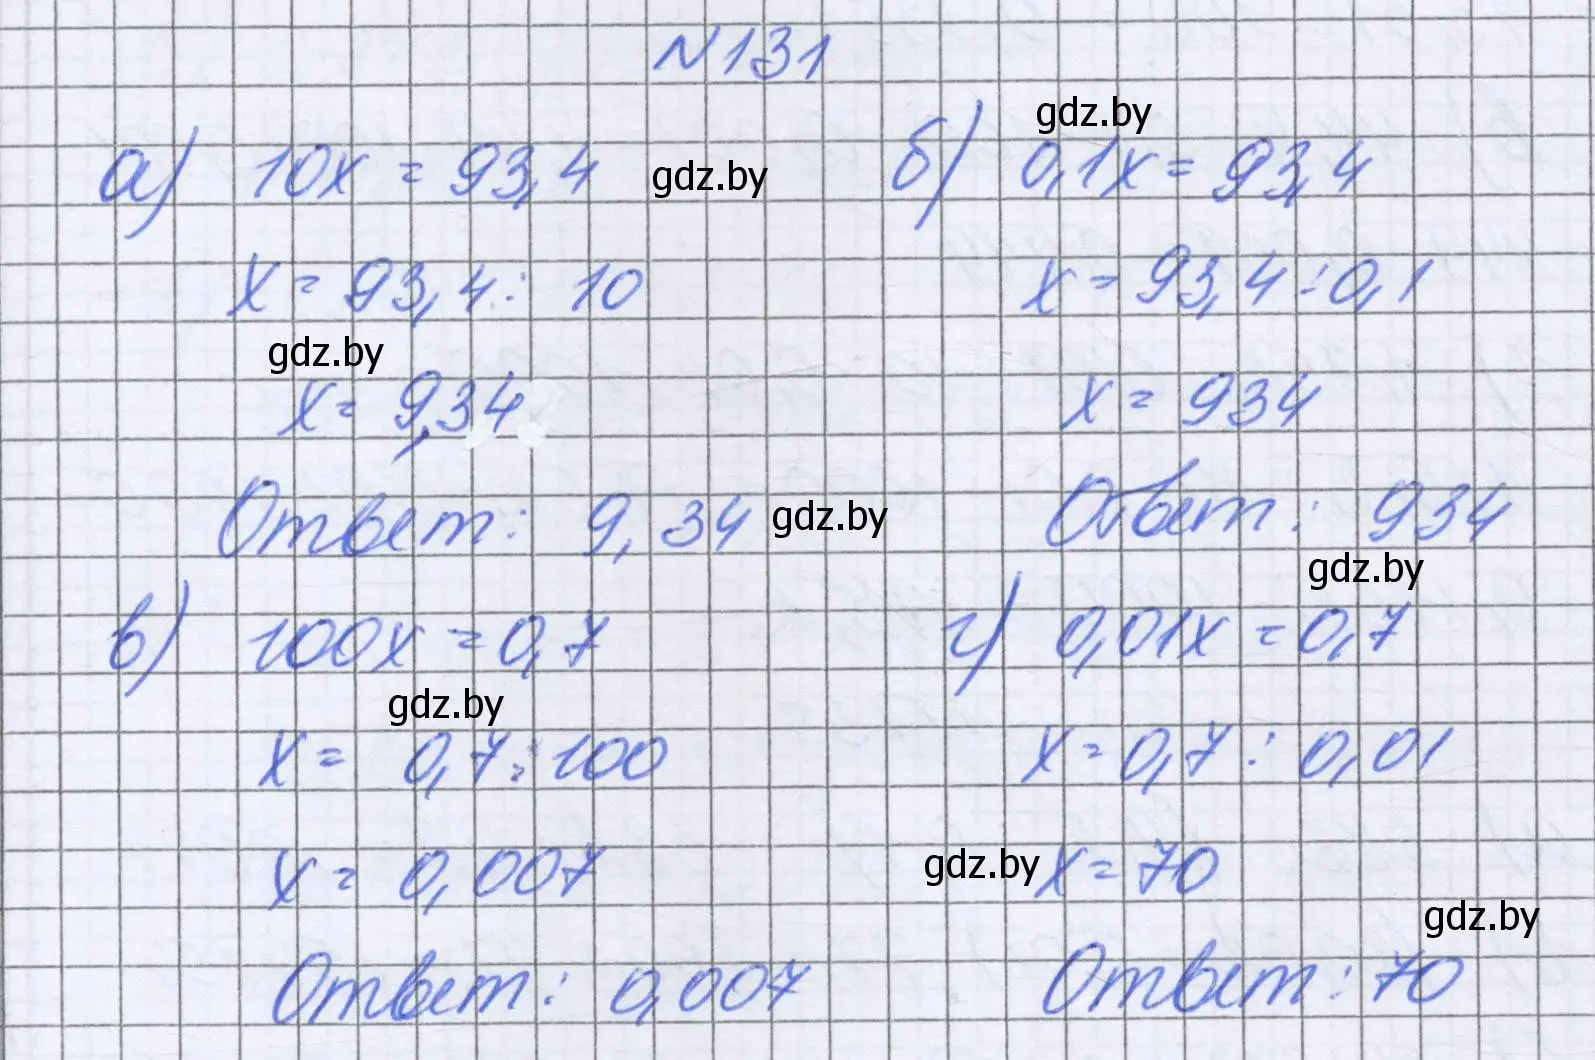 N131
gdz.by
а) 10x = 93,4 gdz.by
б) 0,1x = 93,4
x = 93,4 : 10
x = 93,4 : 0,1
gdz.by
x = 9,34
x = 934
Ответ: 9,34 gdz.by
Ответ: 934
gdz.by
в) 100x = 0,7
г) 0,01x = 0,7
gdz.by
x = 0,7 : 100
x = 0,7 : 0,01
x = 0,007
gdz.by x = 70
gdz.by
Ответ: 0,007
Ответ: 70